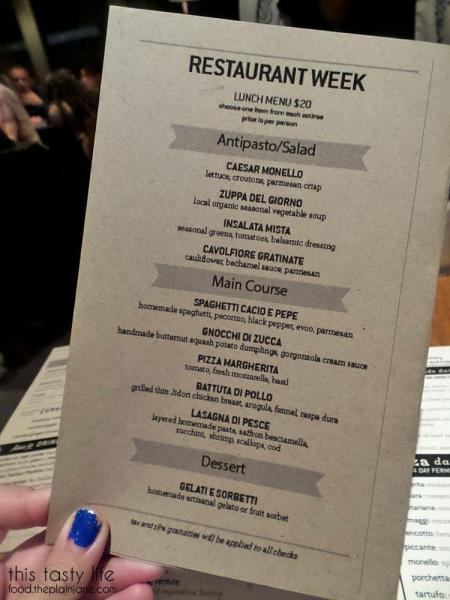 RESTAURANT WEEK
LUNCH MENU $20
choose one item from each course
price is per person
Antipasto/Salad
CAESAR MONELLO
lettuce, croutons, parmesan crisp
ZUPPA DEL GIORNO
local organic seasonal vegetable soup
INSALATA MISTA
seasonal greens, tomatoes, balsamic dressing
CAVOLFIORE GRATINATE
cauliflower, bechamel sauce, parmesan
Main Course
SPAGHETTI CACIO E PEPE
homemade spaghetti, pecorino, black pepper, evoo, parmesan
GNOCCHI DI ZUCCA
handmade butternut squash potato dumplings, gorgonzola cream sauce
PIZZA MARGHERITA
tomato, fresh mozzarella, basil
BATTUTA DI POLLO
grilled thin Jidori chicken breast, arugula, fennel, raspa dura
LASAGNA DI PESCE
layered homemade pasta, saffron besciamella,
zucchini, shrimp, scallops, cod
Dessert
GELATI E SORBETTI
homemade artisanal gelato or fruit sorbet
tax and 18% gratuities will be applied to all checks
DRIN
za da
4 DAY FERME
mariana:
maggi:
encotto:
piccante:
monello:
porchetta
tartufo:
this tasty life
food.theplainjane.com